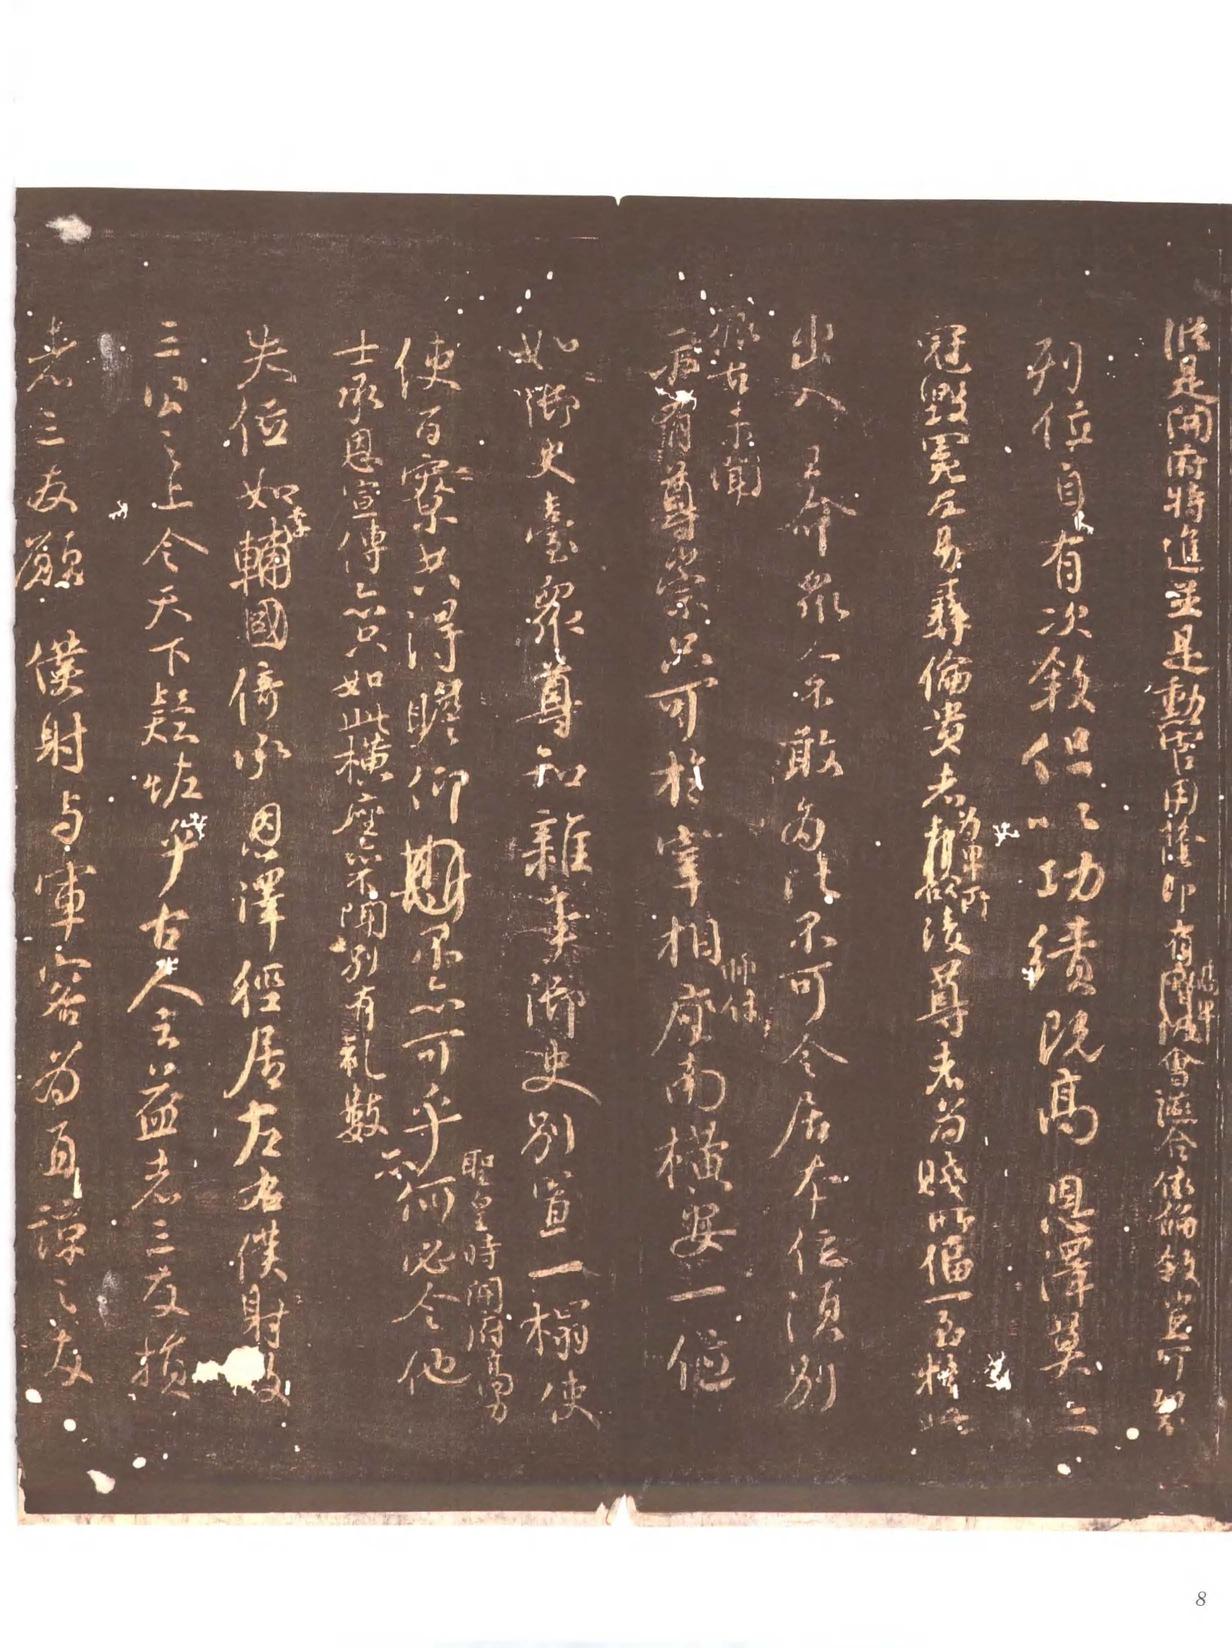 縱是開府特進並是勳官用蔭即有高卑會讌合依倫敘豈可裂
列位自有次敘但以功績既高恩澤莫二
冠毀冕反易彝倫貴者為卑所凌尊者為賤所偪一至於此
出入王命眾人不敢為比不可令居本位須別
振古未聞
示有尊崇只可於宰相師保座南橫安一位
如御史臺眾尊知雜事御史別置一榻使
聖皇時開府高力
使百寮共得瞻仰不亦可乎何必令他
士承恩宣傳亦只如此橫座亦不聞別有禮數亦
失位如李輔國倚承恩澤徑居左右僕射及
三公之上令天下疑怪乎古人云益者三友損
者三友願僕射與軍容為直諒之友
8